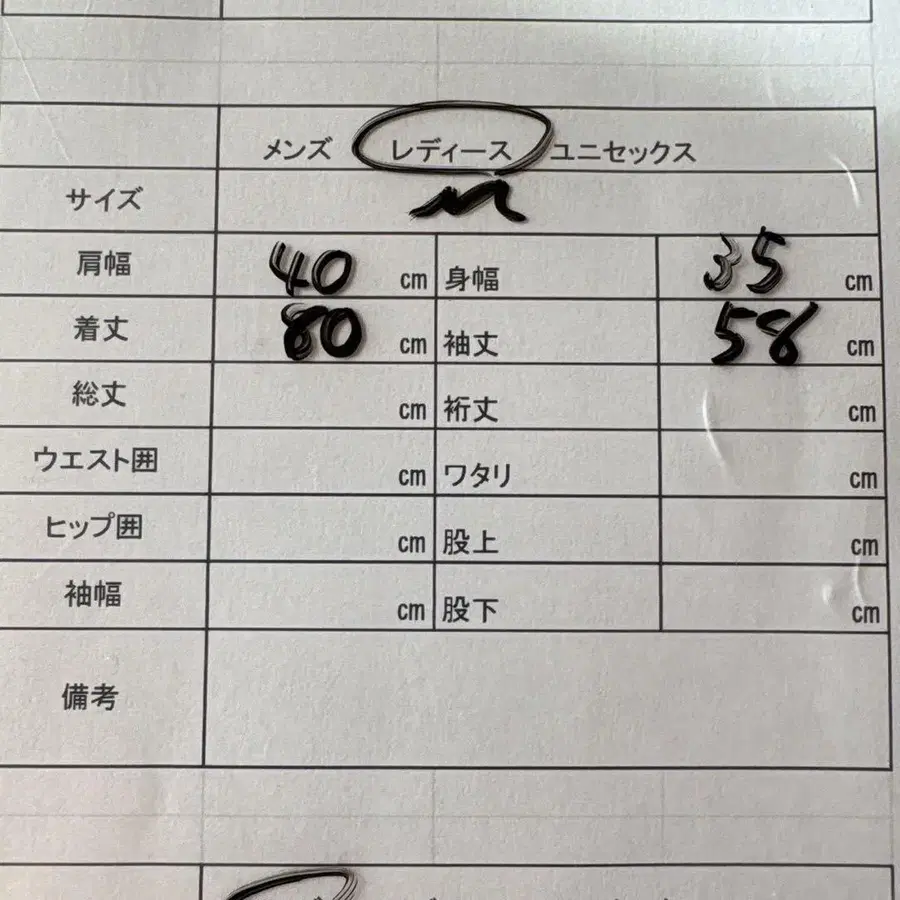 メンズ レディース ユニセックス
サイズ M
肩幅 40 cm 身幅 35 cm
着丈 80 cm 袖丈 58 cm
総丈 cm 裄丈 cm
ウエスト囲 cm ワタリ cm
ヒップ囲 cm 股上 cm
袖幅 cm 股下 cm
備考